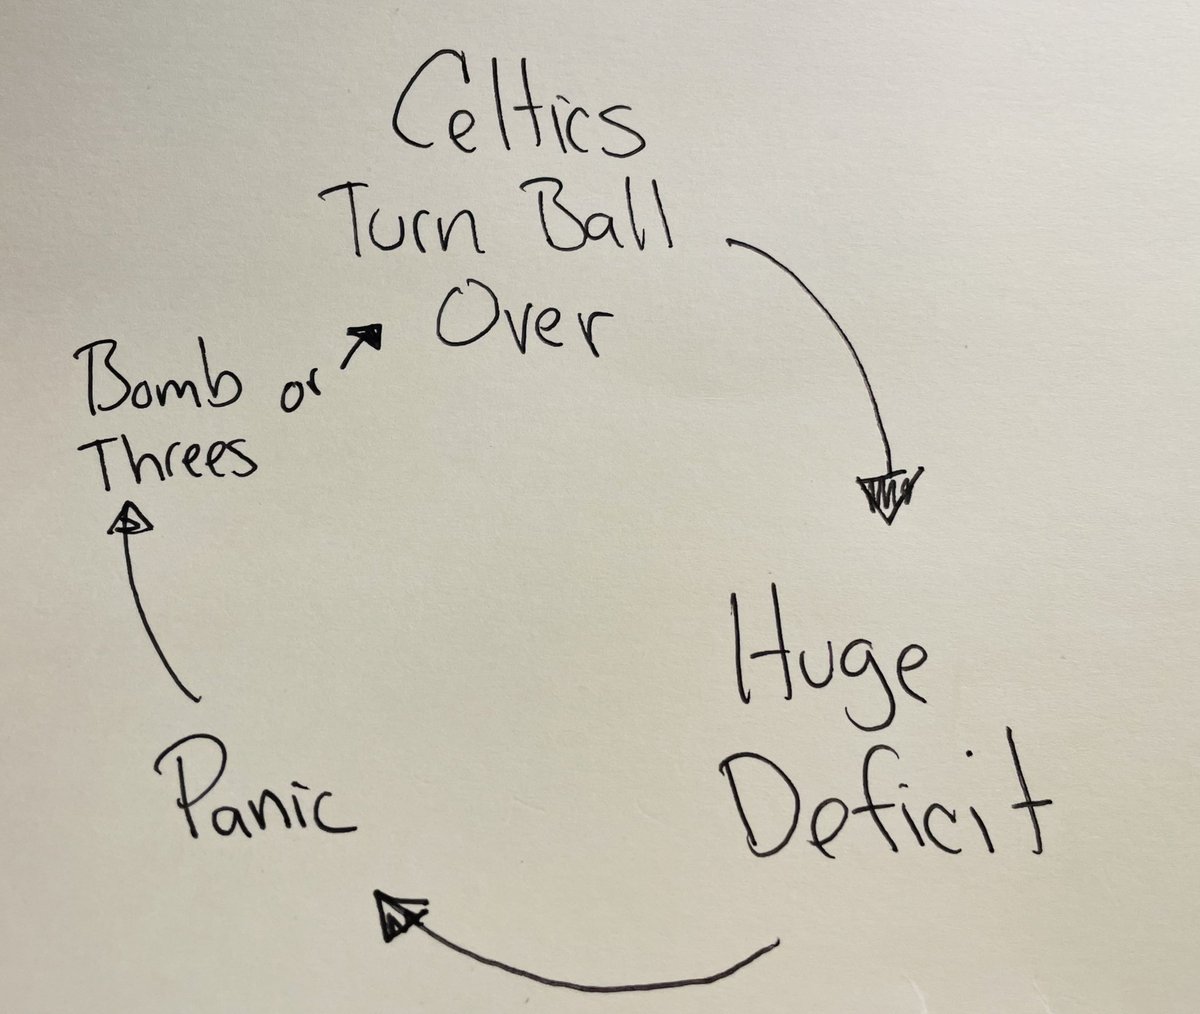 Celtics
Turn Ball
Over
Huge
Deficit
Panic
Bomb or
Threes